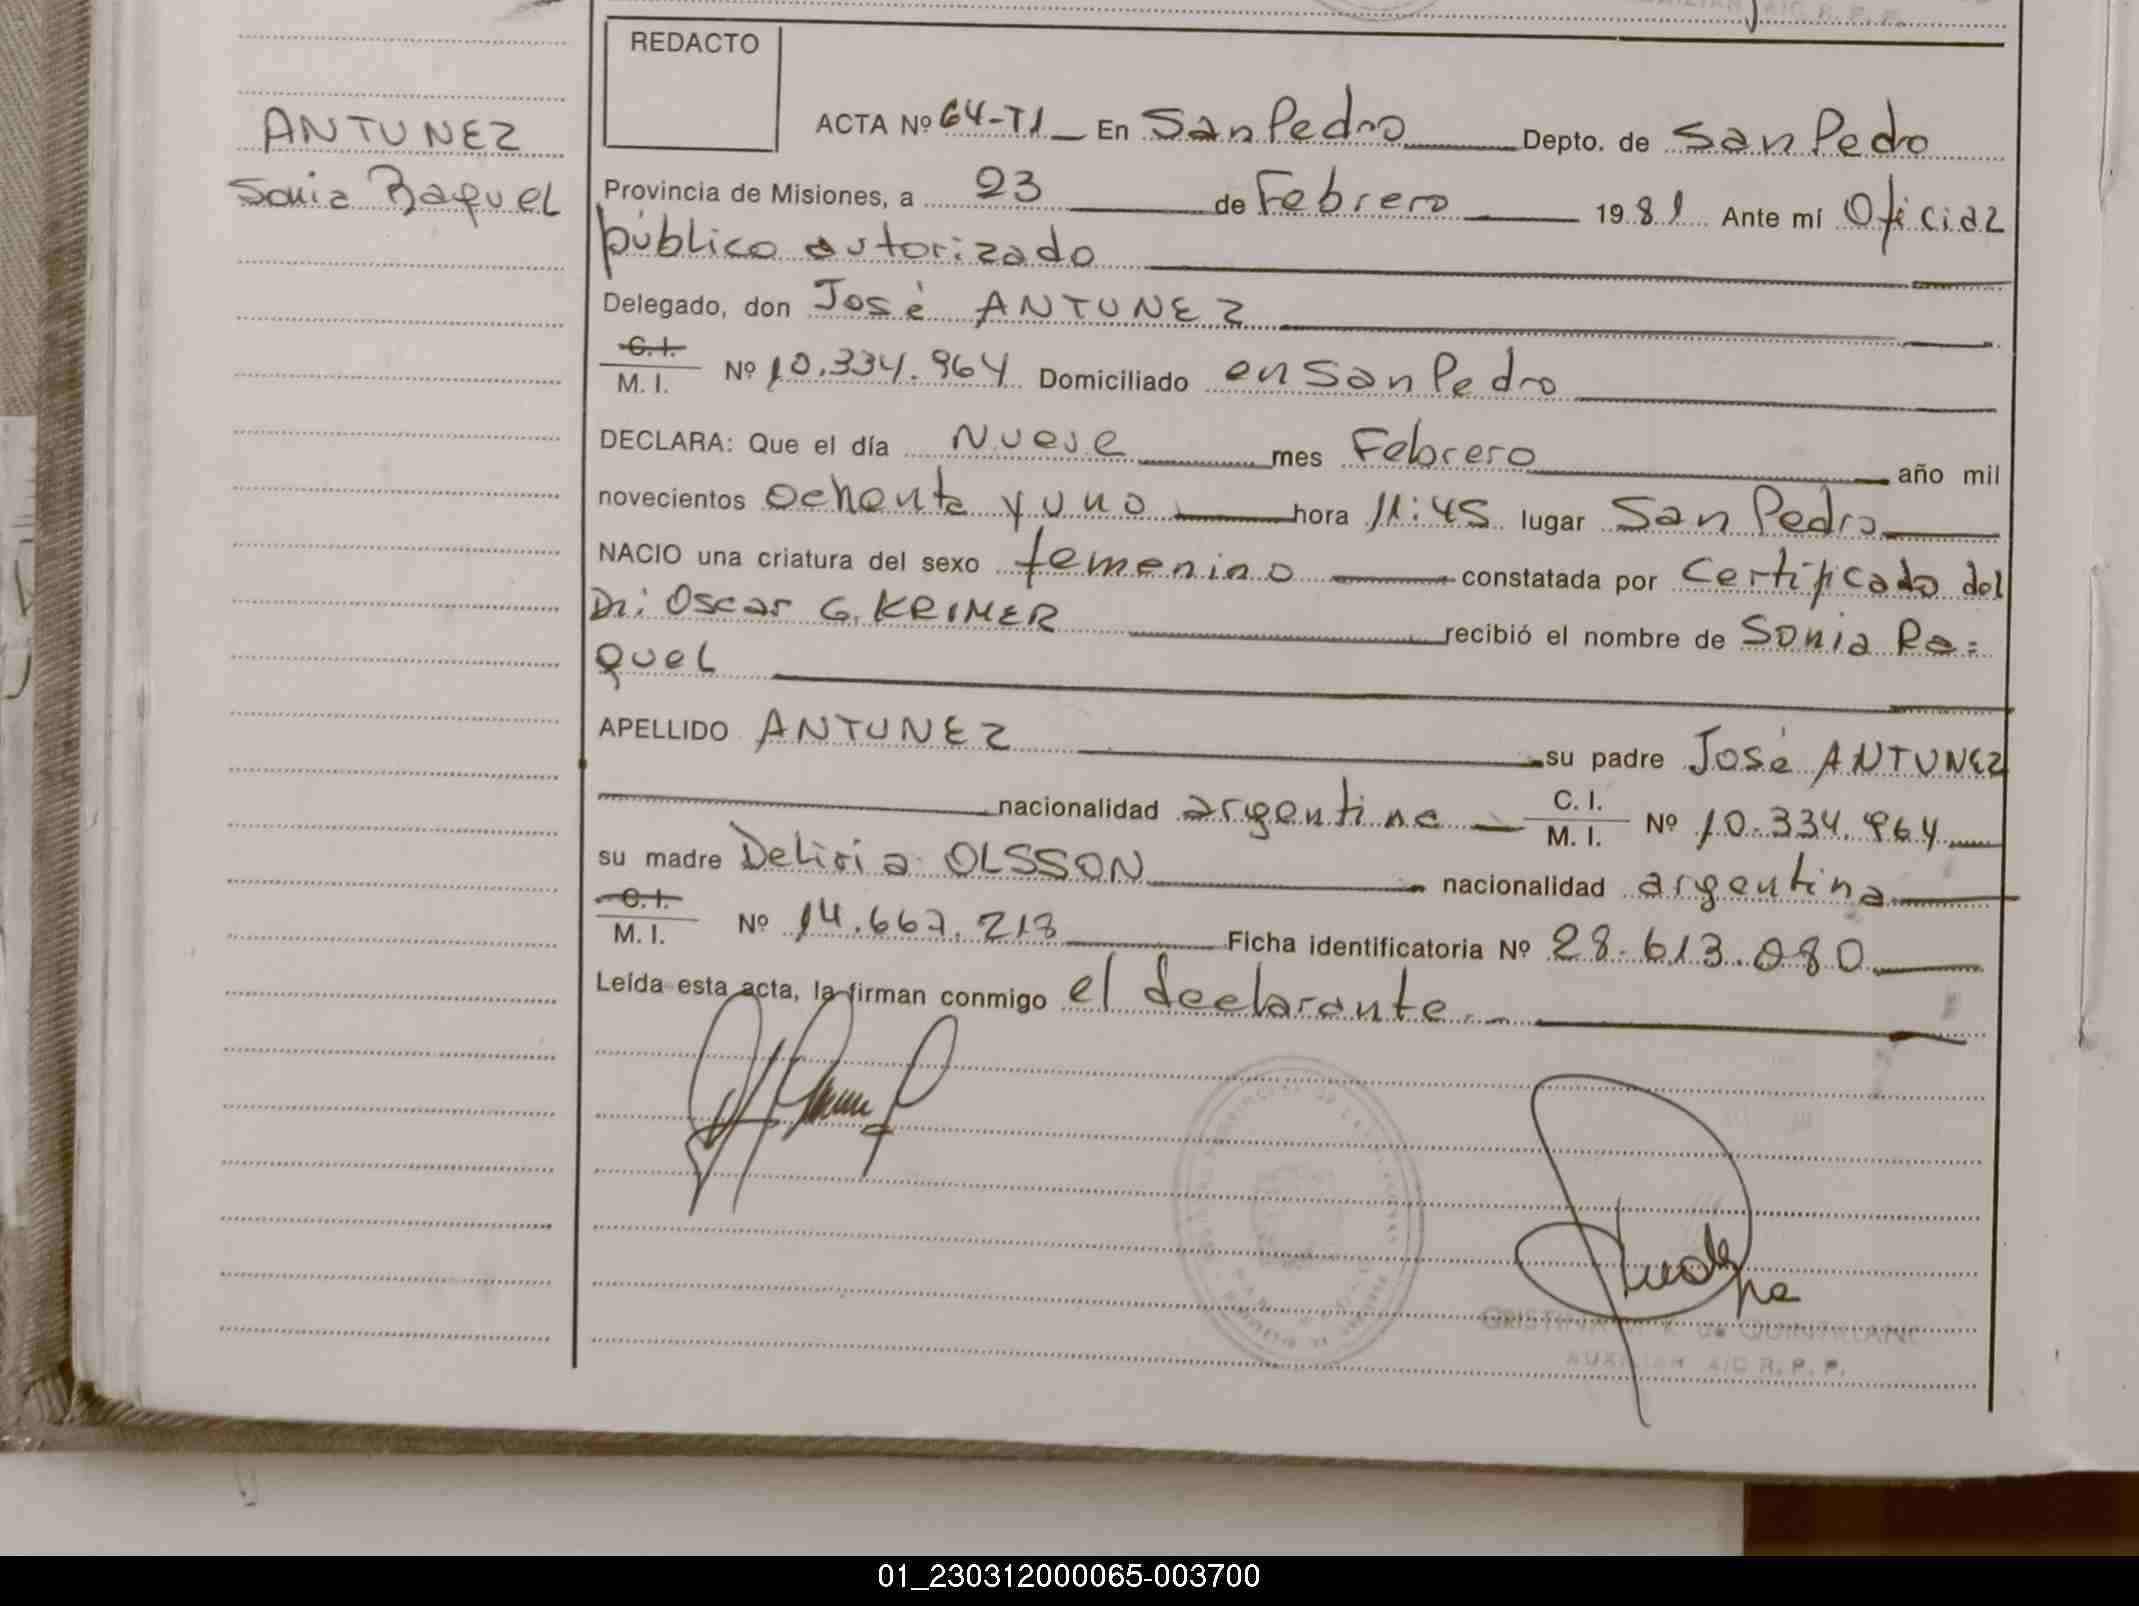 ANTUNEZ
Sonia Raquel
REDACTO
ACTA Nº 64-T1 En San Pedro Depto. de San Pedro
Provincia de Misiones, a 23 de Febrero 1981 Ante mí Oficial
público autorizado
Delegado, don José ANTUNEZ
C. I.
M. I. Nº 10.334.964 Domiciliado en San Pedro
DECLARA: Que el día Nueve mes Febrero año mil
novecientos ochenta y uno hora 11:45 lugar San Pedro
NACIO una criatura del sexo femenino constatada por Certificado del
Dr: Oscar G. KRIMER recibió el nombre de Sonia Ra=
quel
APELLIDO ANTUNEZ su padre José ANTUNEZ
nacionalidad argentina C. I.
M. I. Nº 10.334.964
su madre Deliria OLSSON nacionalidad argentina
C. I.
M. I. Nº 14.667.213 Ficha identificatoria Nº 28.613.080
Leída esta acta, la firman conmigo el declarante.-
CRISTINA de QUINTELANO
AUXILIAR A/C R. P. P.
01_230312000065-003700